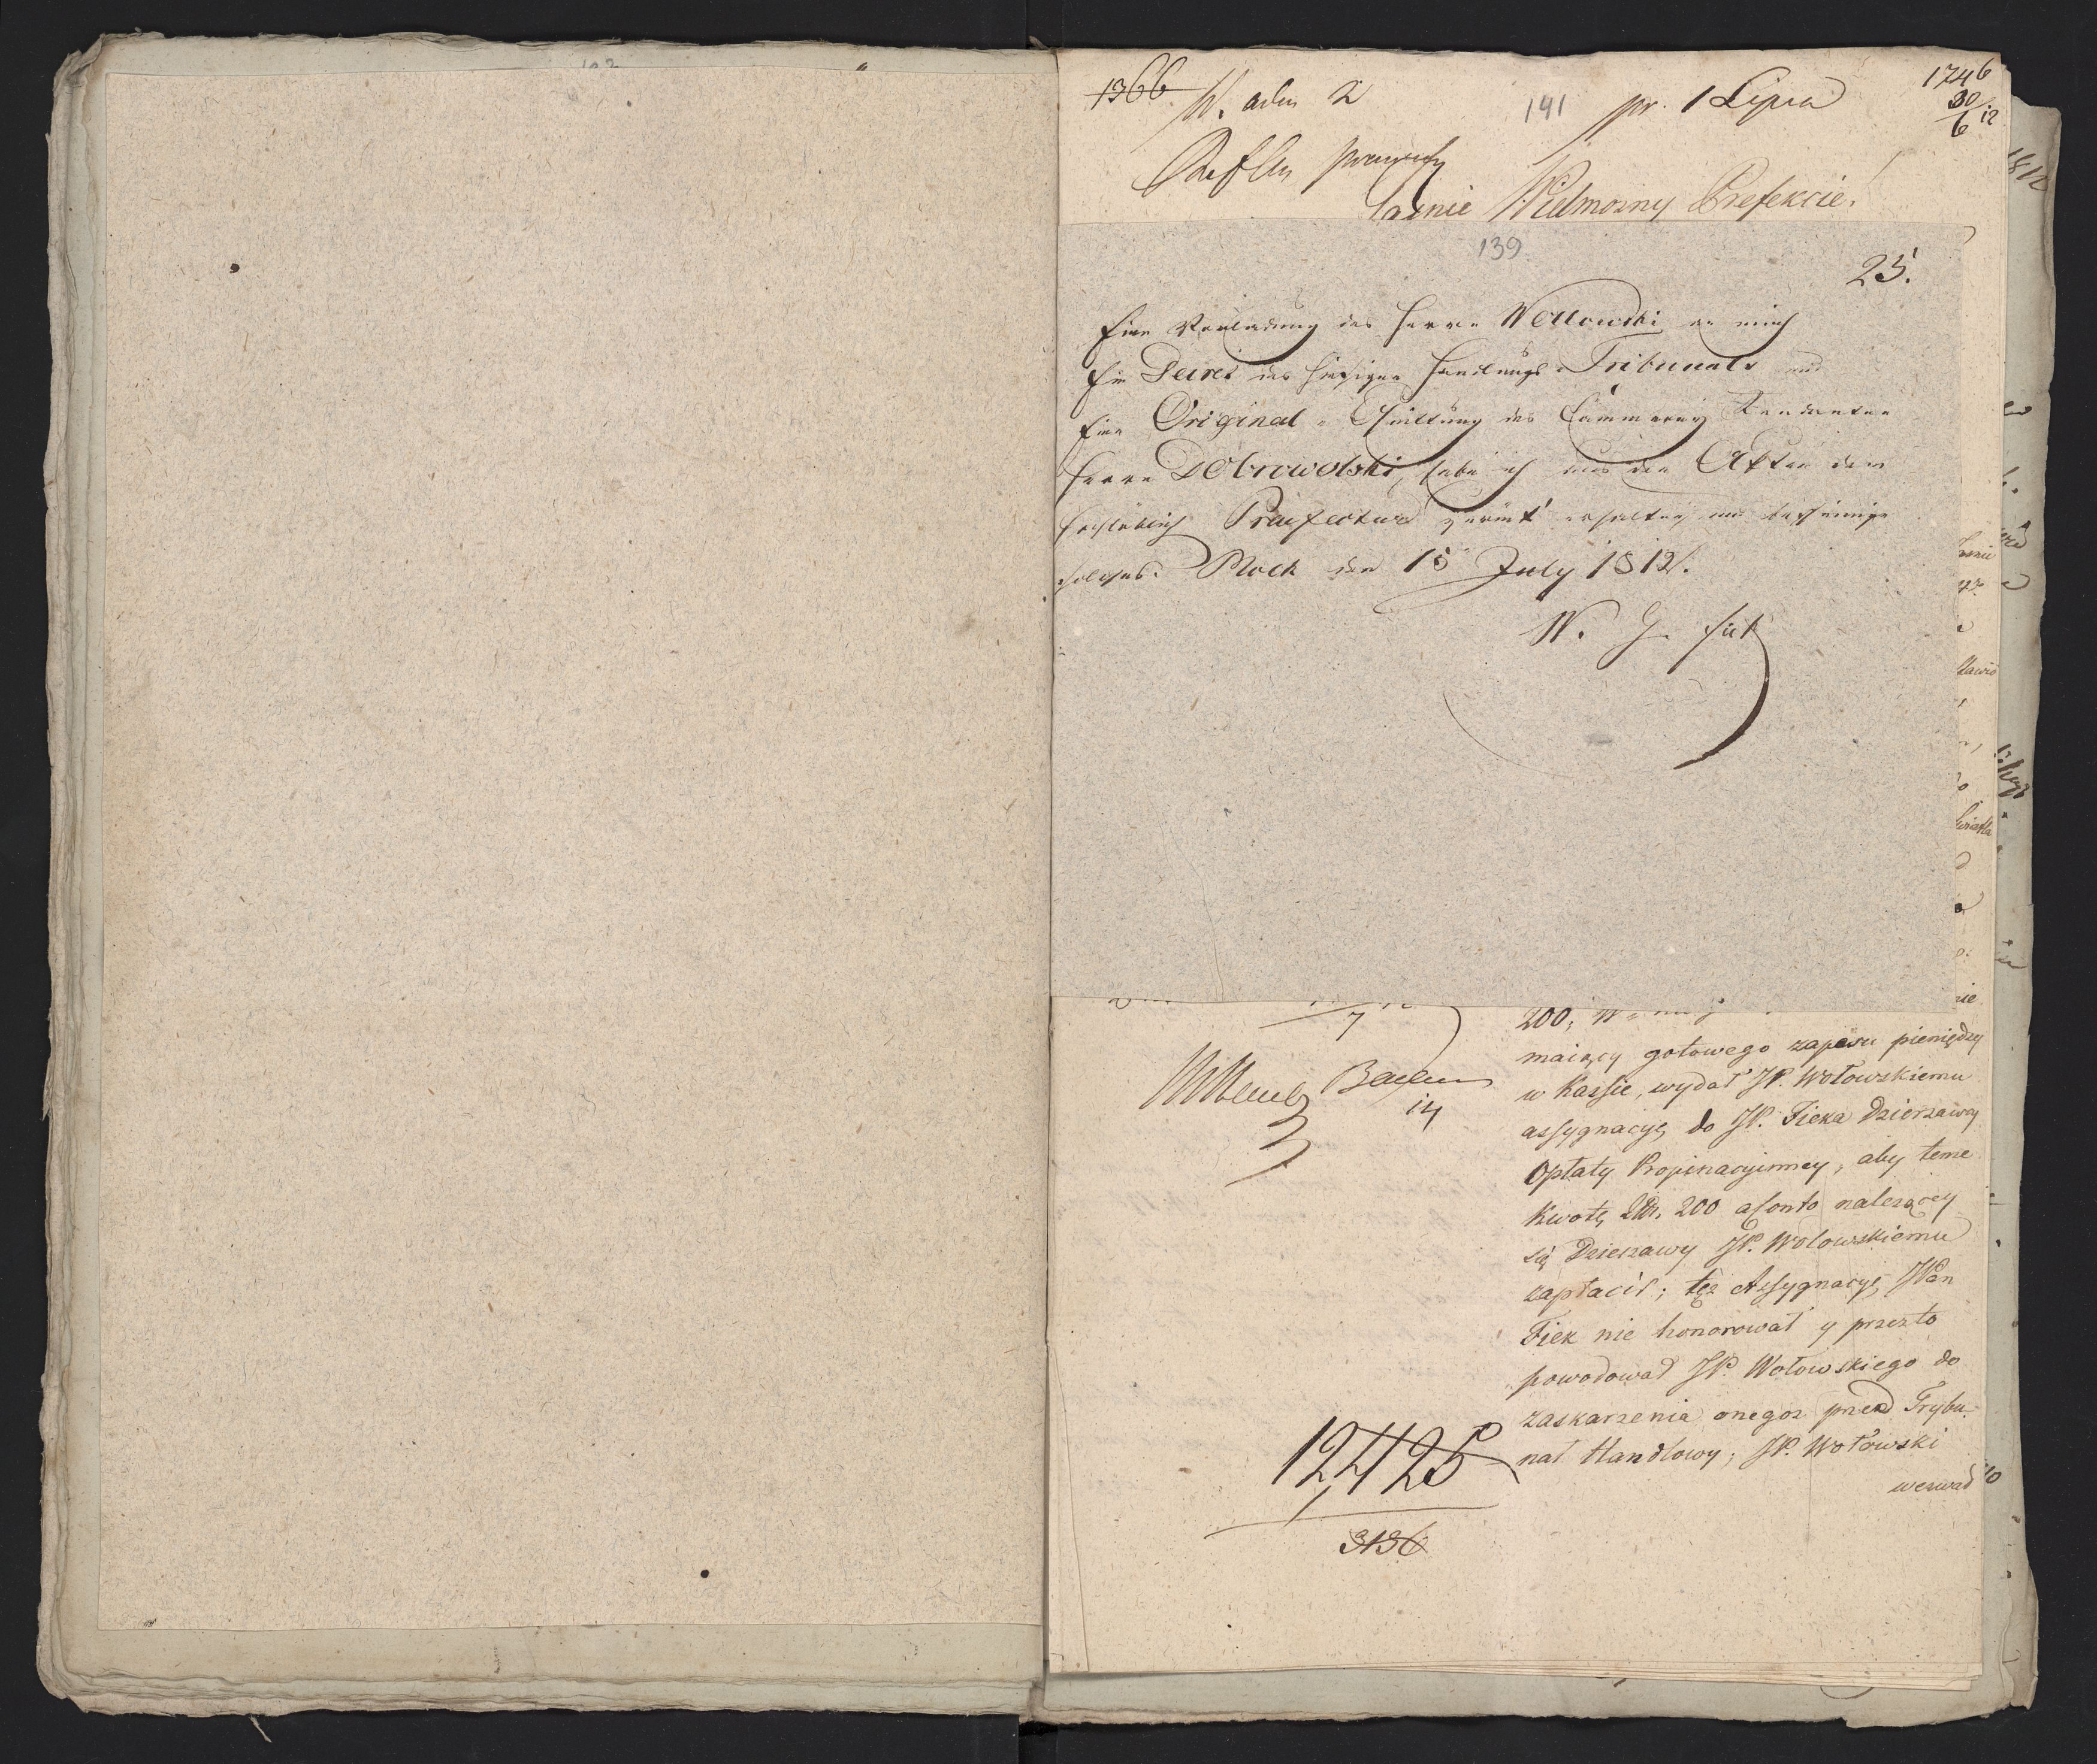 1366
W. adm 2
141
pr. 1 Lipca
1746
30/6 12
Jaśnie Wielmożny Prefekcie!
139
25.
Eine Vorladung des Herrn Wollowski an mich
Ein Decret des hiesigen Handlungs-Tribunals und
Eine Original-Quittung des Cämmerey Rendanten
Herrn Dobrowolski, habe ich aus den Akten der
hochlöblich Praefectur zurück erhalten und bescheinige
solches. Plock den 15 July 1812.
W. G. Fiek
7
14
200;
maiący gotowego zapasu pieniędzy
w Kassie, wydał JP. Wołowskiemu
assygnacyę do JP. Fieka Dzierzawcy
Opłaty Propinacyinney, aby teme
Kwotę Złł. 200 a conto nalezącey
się Dzierzawy JP. Wołowskiemu
zapłacił; też Assygnacyę JPan
Fiek nie honorował y przezto
powodował JP. Wołowskiego do
zaskarzenia onegoz przed Trybu-
nał Handlowy; JP. Wołowski
wezwał
12425
3136